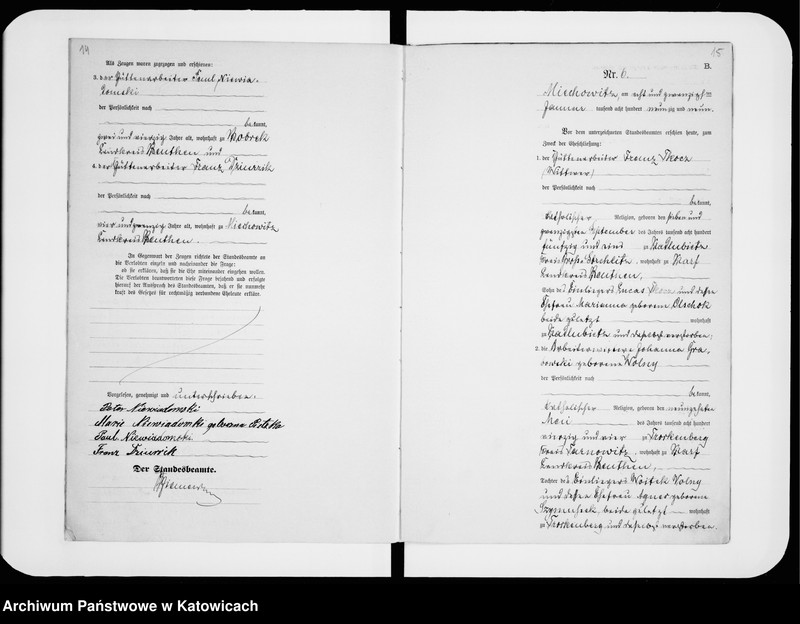 14
Als Zeugen waren zugezogen und erschienen:
3. der Hüttenarbeiter Paul Niewia-
domski
der Persönlichkeit nach
bekannt,
zwei und vierzig Jahre alt, wohnhaft zu Bobrek
Landkreis Beuthen und
4. der Hüttenarbeiter Franz Dziurzik
der Persönlichkeit nach
bekannt,
vier und zwanzig Jahre alt, wohnhaft zu Miechowitz
Landkreis Beuthen.
In Gegenwart der Zeugen richtete der Standesbeamte an
die Verlobten einzeln und nacheinander die Frage:
ob sie erklären, daß sie die Ehe miteinander eingehen wollen.
Die Verlobten beantworteten diese Frage bejahend und erfolgte
hierauf der Ausspruch des Standesbeamten, daß er sie nunmehr
kraft des Gesetzes für rechtmäßig verbundene Eheleute erkläre.
Vorgelesen, genehmigt und unterschrieben.
Peter Niewiadomski
Marie Niewiadomski geborene
Paul Niewiadomski
Franz Dziurzik
Der Standesbeamte.
15
B.
Nr. 6.
Miechowitz, am acht und zwanzigsten
Januar tausend acht hundert neunzig und neun.
Vor dem unterzeichneten Standesbeamten erschien heute, zum
Zweck der Eheschließung:
1. der Hüttenarbeiter Franz Tkocz
(Wittwer)
der Persönlichkeit nach
bekannt,
katholischer Religion, geboren den sieben und
zwanzigsten September des Jahres tausend acht hundert
fünfzig und eins zu Kadlubietz
Kreis Groß Strehlitz, wohnhaft zu Karf
Landkreis Beuthen,
Sohn des Einliegers Lucas Tkocz und dessen
Ehefrau Marianna geborene Olschok
beide zuletzt wohnhaft
zu Kadlubietz und daselbst verstorben;
2. die Arbeiterwittwe Johanna Gra-
bowski geborene Wolny
der Persönlichkeit nach
bekannt,
katholischer Religion, geboren den neunzehnten
Mai des Jahres tausend acht hundert
vierzig und vier zu Trockenberg
Kreis Tarnowitz, wohnhaft zu Karf
Landkreis Beuthen,
Tochter des Einliegers Woitek Wolny
und dessen Ehefrau Agnes geborene
beide zuletzt wohnhaft
zu Trockenberg und daselbst verstorben.
Archiwum Państwowe w Katowicach